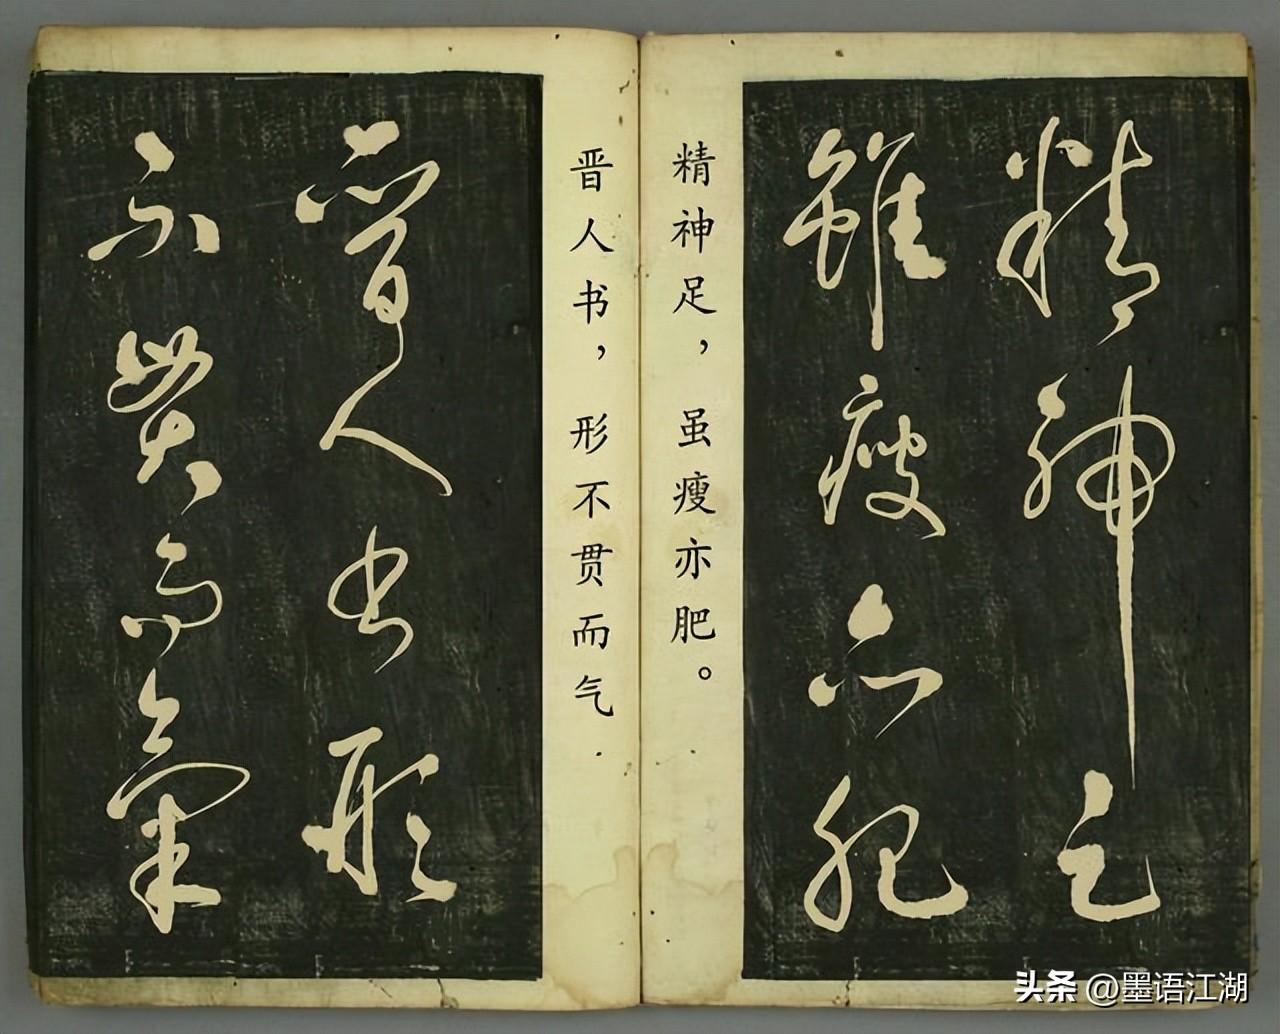 精神足
雖瘦亦肥
精神足，虽瘦亦肥。
晋人书，形不贯而气
晉人書形
不貫而氣
头条 @墨语江湖